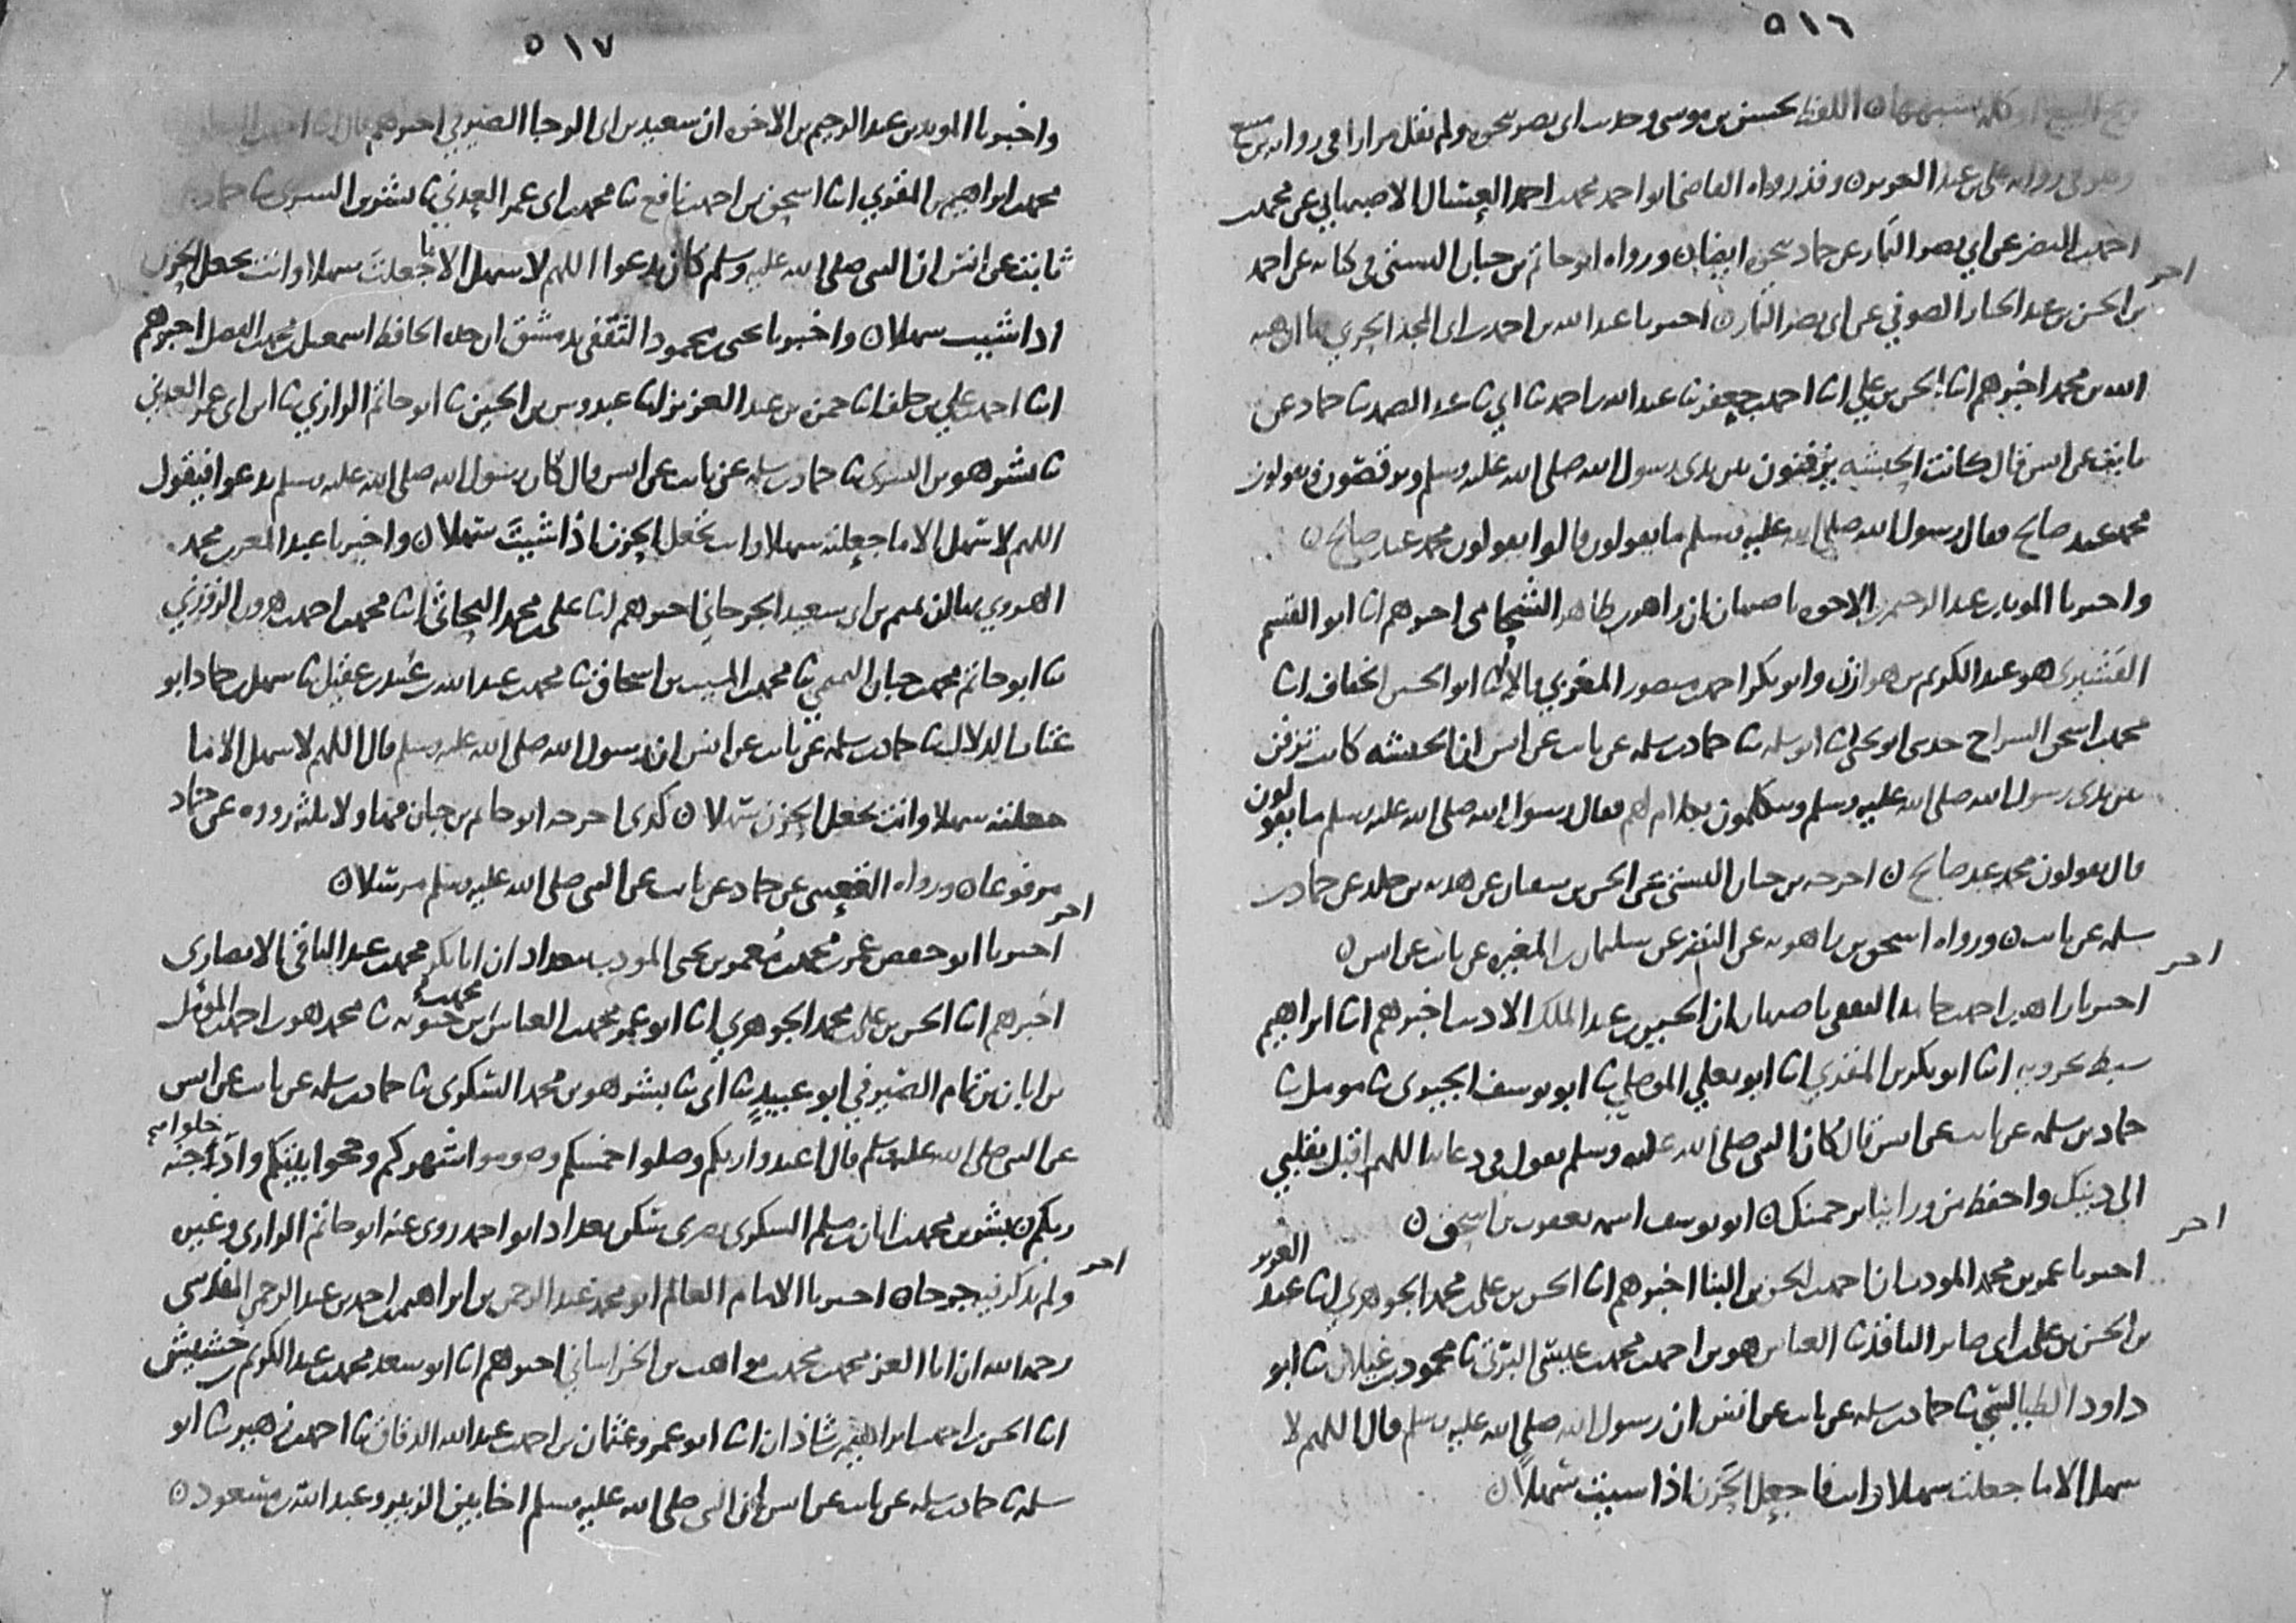 ٥١٦
اللفظ لحسن بن موسى وحديث ابي نصر نحوه ولم نقل مرارا في رواية
وقد رواه القاضي ابو احمد محمد بن احمد العسال الاصبهاني عن محمد بن
احمد بن النضر عن ابي نصر التمار عن حماد نحوه ايضا ورواه ابو حاتم بن حبان البستي في كتابه عن احمد
اخر
بن الحسن بن عبد الجبار الصوفي عن ابي نصر التمار اخبرنا عبد الله بن احمد بن ابي المجد الحربي ان هبة
الله بن محمد اخبرهم ابنا الحسن بن علي ابنا احمد بن جعفر ثنا عبد الله بن احمد ثنا ابي ثنا عبد الصمد ثنا حماد عن
ثابت عن انس قال كانت الحبشة يزفنون بين يدي رسول الله صلى الله عليه وسلم ويرقصون ويقولون
محمد عبد صالح فقال رسول الله صلى الله عليه وسلم ما يقولون قالوا يقولون محمد عبد صالح
واخبرنا المويد بن عبد الرحيم بن الاخوة باصبهان ان زاهر بن طاهر الشحامي اخبرهم ابنا ابو القسم
القشيري هو عبد الكريم بن هوازن وابو بكر احمد بن منصور المغربي قالا ابنا ابو الحسين الخفاف ابنا
محمد بن اسحق السراج حدثني ابو يحيى ثنا ابو سلمة ثنا حماد بن سلمة عن ثابت عن انس ان الحبشة كانت تزفن
بين يدي رسول الله صلى الله عليه وسلم ويتكلمون بكلام لهم فقال رسول الله صلى الله عليه وسلم ما يقولون
قال يقولون محمد عبد صالح اخرجه بن حبان البستي عن الحسن بن سفيان عن هدبة بن خالد عن حماد بن
سلمة عن ثابت ورواه اسحق بن راهويه عن النضر عن سليمان بن المغيرة عن ثابت عن انس
اخر
اخبرنا زاهر بن احمد بن حامد الثقفي باصبهان ان الحسين بن عبد الملك الاديب اخبرهم ابنا ابراهيم
سبط بحرويه ابنا ابو بكر بن المقري ابنا ابو يعلى الموصلي ثنا ابو يوسف الجيزي ثنا مومل ثنا
حماد بن سلمة عن ثابت عن انس قال كان النبي صلى الله عليه وسلم يقول في دعائه اللهم اقبل بقلبي
الى دينك واحفظ من ورائنا برحمتك ابو يوسف اسمه يعقوب بن اسحق
اخر
اخبرنا عمر بن محمد المودب ان احمد بن الحسن بن البنا اخبرهم ابنا الحسن بن علي بن محمد الجوهري ابنا عبد العزيز
بن الحسن بن علي بن ابي صابر الناقد ثنا العباس هو بن احمد بن محمد بن عيسى البرتي ثنا محمود بن غيلان ثنا ابو
داود الطيالسي ثنا حماد بن سلمة عن ثابت عن انس ان رسول الله صلى الله عليه وسلم قال اللهم لا
سهل الا ما جعلت سهلا وانت فاجعل الحزن اذا شيت سهلا
٥١٧
واخبرنا المويد بن عبد الرحيم بن الاخوة ان سعيد بن ابي الرجا الصيرفي اخبرهم
محمد بن ابراهيم بن المقري ابنا اسحق بن احمد بن نافع ثنا محمد بن ابي عمر العدني ثنا بشر بن السري ثنا حماد
ثابت عن انس ان النبي صلى الله عليه وسلم كان يدعوا اللهم لا سهل الا ما جعلت سهلا وانت تجعل الحزن
اذا شيت سهلا واخبرنا يحيى بن محمود الثقفي بدمشق ان جده الحافظ اسمعيل بن محمد بن الفضل اخبرهم
ابنا احمد بن علي بن خلف ابنا حمزة بن عبد العزيز ابنا عبدوس بن الحسين ثنا ابو حاتم الرازي ثنا ابن ابي عمر العدني
ثنا بشر هو بن السري ثنا حماد بن سلمة عن ثابت عن انس قال كان رسول الله صلى الله عليه وسلم يدعوا فيقول
اللهم لا سهل الا ما جعلته سهلا وانت تجعل الحزن اذا شيت سهلا واخبرنا عبد المعز بن محمد
الهروي بها ان تميم بن ابي سعيد الجرجاني اخبرهم ابنا علي بن محمد البحاثي ابنا محمد بن احمد بن هرون الزوزني
ثنا ابو حاتم محمد بن حبان التميمي ثنا محمد بن المسيب بن اسحاق ثنا محمد بن عبد الله بن عبيد بن عقيل ثنا سهل بن حماد ابو
عتاب الدلال ثنا حماد بن سلمة عن ثابت عن انس ان رسول الله صلى الله عليه وسلم قال اللهم لا سهل الا ما
جعلته سهلا وانت تجعل الحزن سهلا كذى اخرجه ابو حاتم بن حبان فهاولا ثلثة رووه عن حماد
مرفوعا ورواه القعنبي عن حماد عن ثابت عن النبي صلى الله عليه وسلم مرسلا
اخر
اخبرنا ابو حفص عمر بن محمد بن معمر بن يحيى المودب ببغداد ان ابا بكر محمد بن عبد الباقي الانصاري
اخبرهم ابنا الحسن بن علي بن محمد الجوهري ابنا ابو عمر محمد بن العباس بن محمد بن حيويه ثنا محمد هو بن احمد بن المومل
بن ابان بن تمام الصيرفي ابو عبيد ثنا ابي ثنا بشر هو بن محمد السكري ثنا حماد بن سلمة عن ثابت عن انس
عن النبي صلى الله عليه وسلم قال اعبدوا ربكم وصلوا خمسكم وصوموا شهركم وحجوا بيتكم وادخلوا جنة
ربكم بشر بن محمد بن ابان بن مسلم السكري بصري سكن بغداد ابو احمد روى عنه ابو حاتم الرازي وغيره
ولم يذكر فيه جرحا
اخر
اخبرنا الامام العالم ابو محمد عبد الرحمن بن ابراهيم بن احمد بن عبد الرحمن المقدسي
رحمه الله ان ابا العز محمد بن محمد بن مواهب بن الخراساني اخبرهم ابنا ابو سعد محمد بن عبد الكريم بن خشيش
ابنا الحسن بن احمد بن ابراهيم بن شاذان ابنا ابو عمرو عثمان بن احمد بن عبد الله الدقاق ثنا احمد بن زهير ثنا ابو
سلمة ثنا حماد بن سلمة عن ثابت عن انس ان النبي صلى الله عليه وسلم اخا بين الزبير وعبد الله بن مسعود